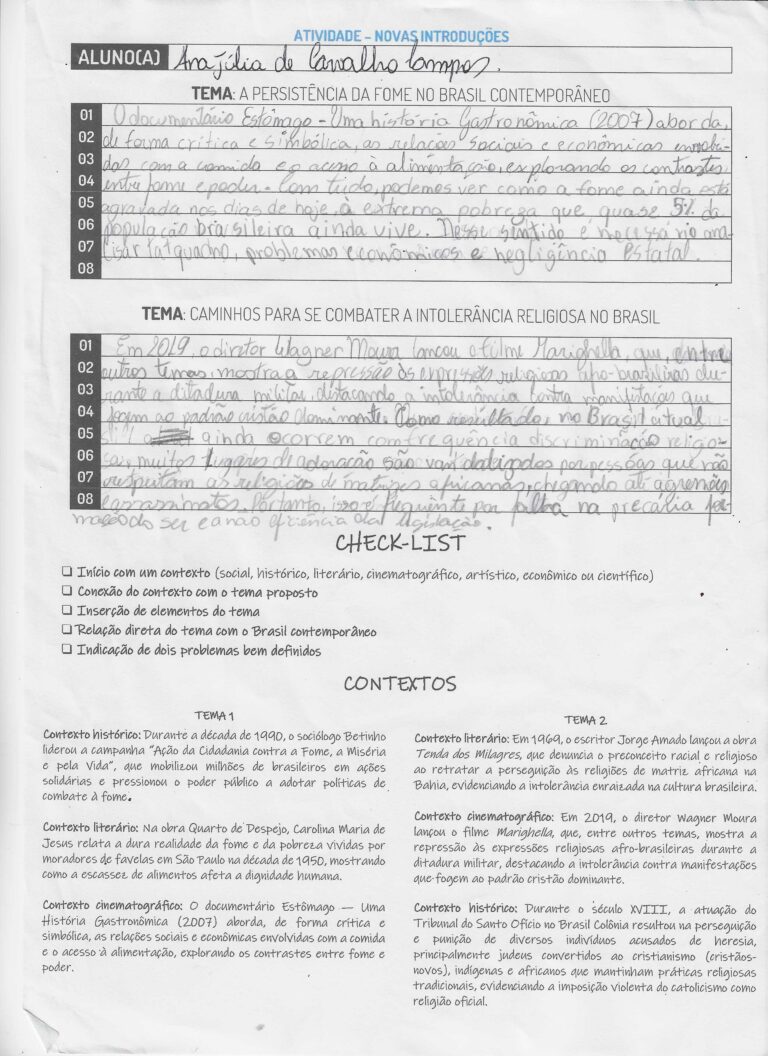 ATIVIDADE – NOVAS INTRODUÇÕES
ALUNO(A) Ana Júlia de Carvalho Campos.
TEMA: A PERSISTÊNCIA DA FOME NO BRASIL CONTEMPORÂNEO
01 O documentário Estômago - Uma história Gastronômica (2007) aborda,
02 de forma crítica e simbólica, as relações sociais e econômicas envolvi-
03 das com a comida e o acesso à alimentação, explorando os contrastes
04 entre fome e poder. Com tudo, podemos ver como a fome ainda está
05 agravada nos dias de hoje, à extrema pobreza que, quase 5% da
06 população brasileira ainda vive. Nesse sentido é necessário ana-
07 lisar tal quadro, problemas econômicos e negligência estatal.
08
TEMA: CAMINHOS PARA SE COMBATER A INTOLERÂNCIA RELIGIOSA NO BRASIL
01 Em 2019, o diretor Wagner Moura lançou o filme Marighella, que, entre
02 outros temas, mostra a repressão às expressões religiosas afro-brasileiras du-
03 rante a ditadura militar, destacando a intolerância contra manifestações que
04 fogem ao padrão cristão dominante. Como resultado, no Brasil atual
05 ainda ocorrem com frequência discriminação religio-
06 sa, muitos lugares de adoração são vandalizados por pessoas que não
07 respeitam as religiões de matrizes africanas, chegando até agressões
08 e assassinatos. Portanto, isso é frequente por falha na precária for-
mação do ser e a não eficiência da legislação.
CHECK-LIST
❑ Início com um contexto (social, histórico, literário, cinematográfico, artístico, econômico ou científico)
❑ Conexão do contexto com o tema proposto
❑ Inserção de elementos do tema
❑ Relação direta do tema com o Brasil contemporâneo
❑ Indicação de dois problemas bem definidos
CONTEXTOS
TEMA 1
Contexto histórico: Durante a década de 1990, o sociólogo Betinho
liderou a campanha "Ação da Cidadania contra a Fome, a Miséria
e pela Vida", que mobilizou milhões de brasileiros em ações
solidárias e pressionou o poder público a adotar políticas de
combate à fome.
Contexto literário: Na obra Quarto de Despejo, Carolina Maria de
Jesus relata a dura realidade da fome e da pobreza vividas por
moradores de favelas em São Paulo na década de 1950, mostrando
como a escassez de alimentos afeta a dignidade humana.
Contexto cinematográfico: O documentário Estômago — Uma
História Gastronômica (2007) aborda, de forma crítica e
simbólica, as relações sociais e econômicas envolvidas com a comida
e o acesso à alimentação, explorando os contrastes entre fome e
poder.
TEMA 2
Contexto literário: Em 1969, o escritor Jorge Amado lançou a obra
Tenda dos Milagres, que denuncia o preconceito racial e religioso
ao retratar a perseguição às religiões de matriz africana na
Bahia, evidenciando a intolerância enraizada na cultura brasileira.
Contexto cinematográfico: Em 2019, o diretor Wagner Moura
lançou o filme Marighella, que, entre outros temas, mostra a
repressão às expressões religiosas afro-brasileiras durante a
ditadura militar, destacando a intolerância contra manifestações
que fogem ao padrão cristão dominante.
Contexto histórico: Durante o século XVIII, a atuação do
Tribunal do Santo Ofício no Brasil Colônia resultou na perseguição
e punição de diversos indivíduos acusados de heresia,
principalmente judeus convertidos ao cristianismo (cristãos-
novos), indígenas e africanos que mantinham práticas religiosas
tradicionais, evidenciando a imposição violenta do catolicismo como
religião oficial.